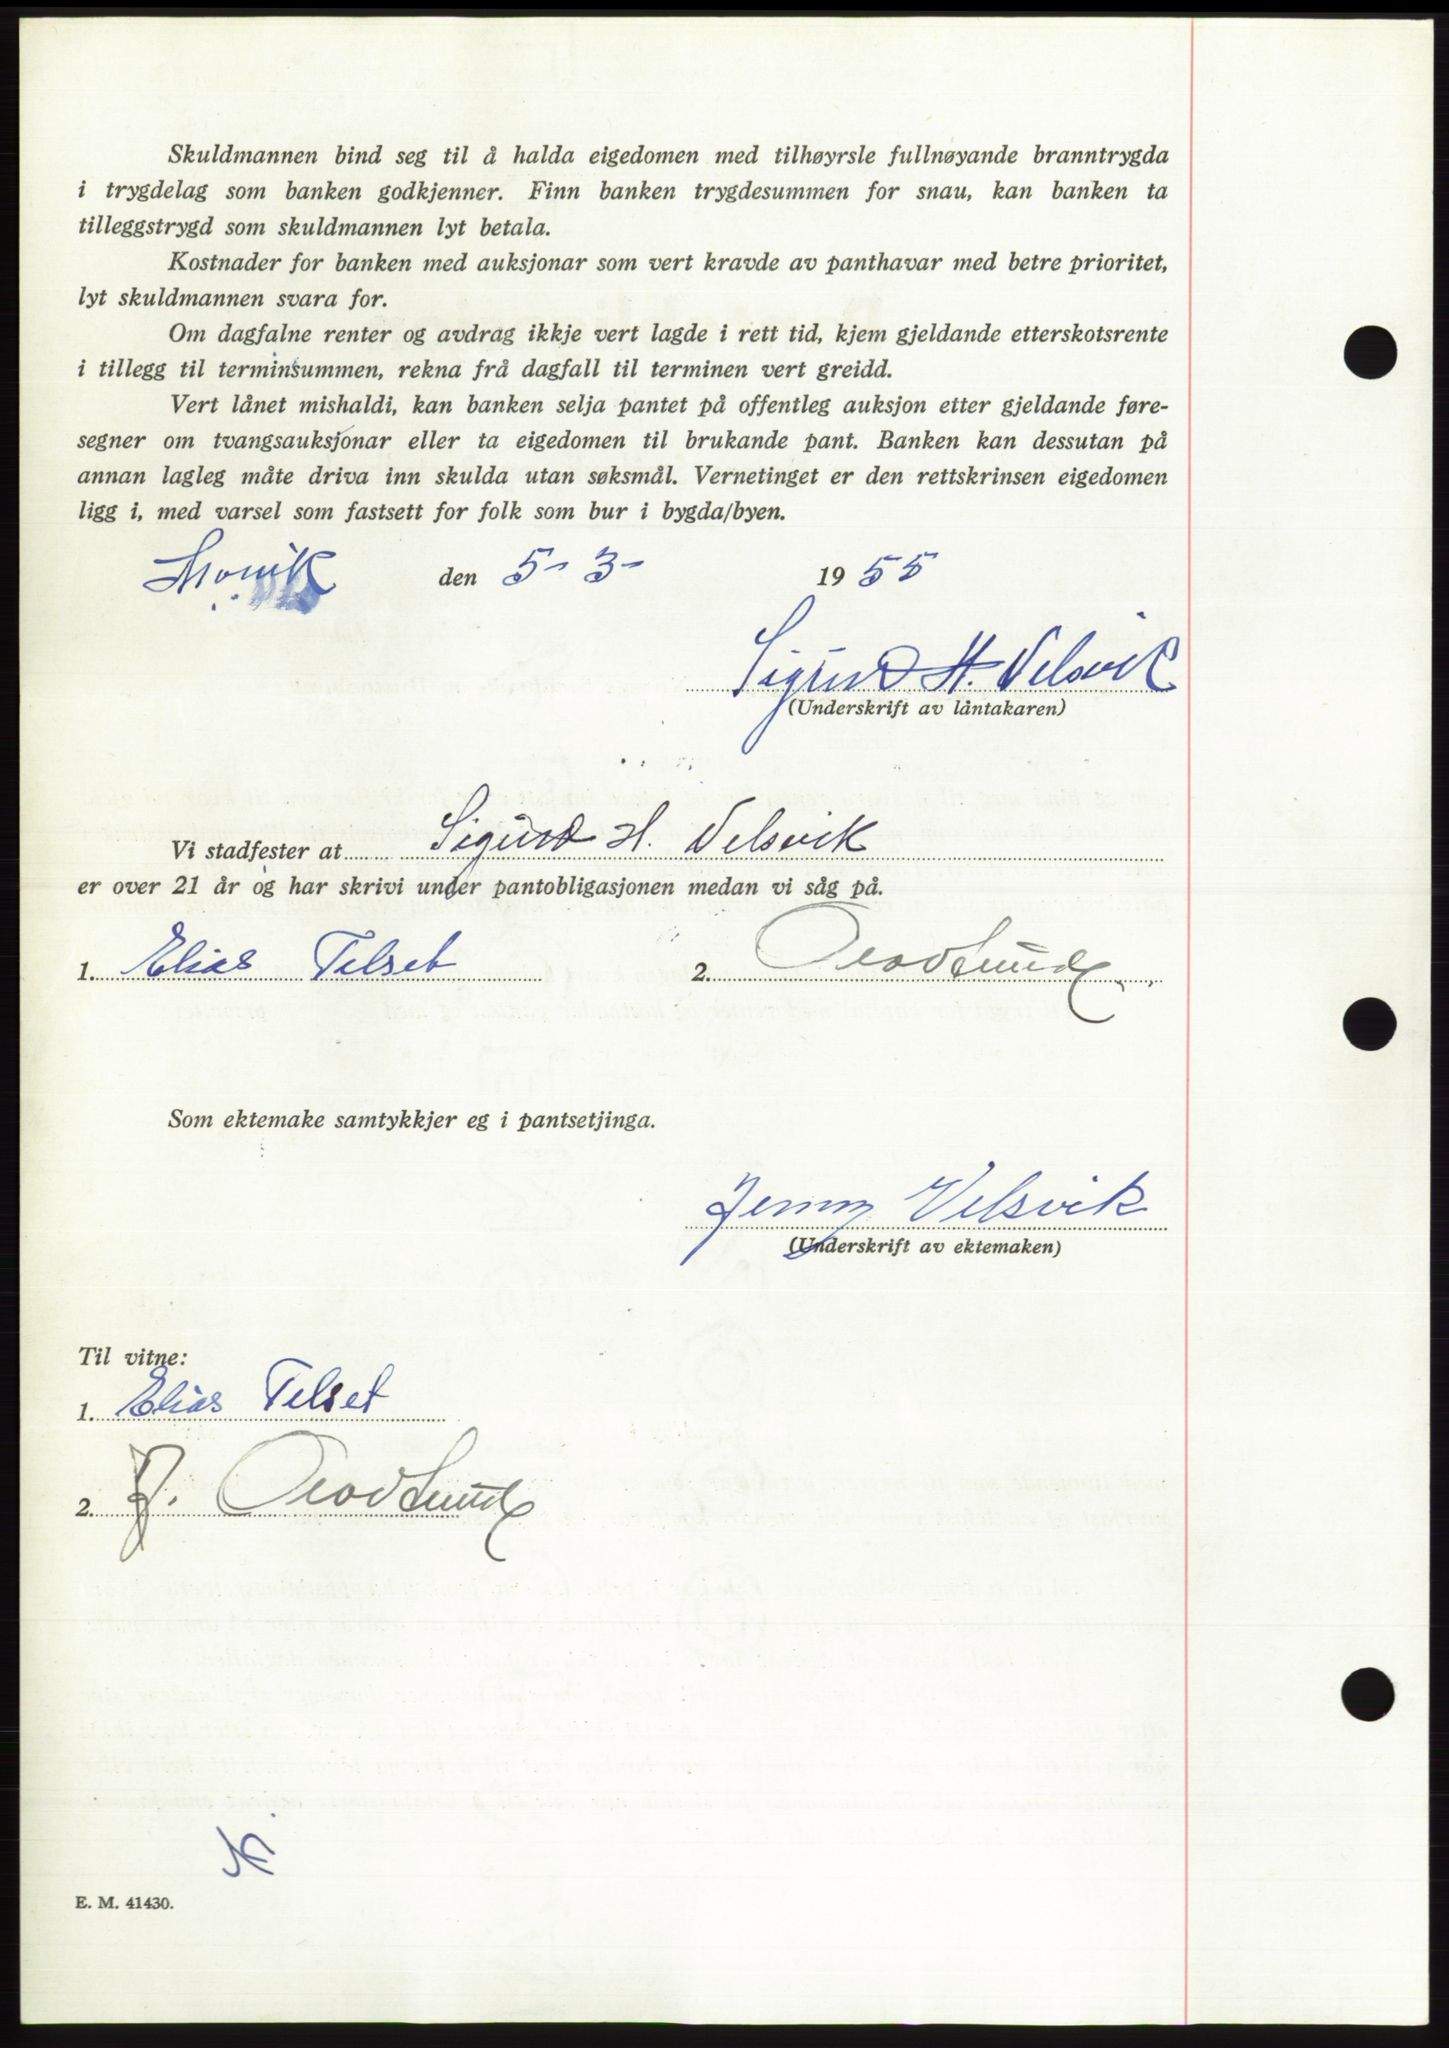 Skuldmannen bind seg til å halda eigedomen med tilhøyrsle fullnøyande branntrygda
i trygdelag som banken godkjenner. Finn banken trygdesummen for snau, kan banken ta
tilleggstrygd som skuldmannen lyt betala.
Kostnader for banken med auksjonar som vert kravde av panthavar med betre prioritet,
lyt skuldmannen svara for.
Om dagfalne renter og avdrag ikkje vert lagde i rett tid, kjem gjeldande etterskotsrente
i tillegg til terminsummen, rekna frå dagfall til terminen vert greidd.
Vert lånet mishaldi, kan banken selja pantet på offentleg auksjon etter gjeldande føre-
segner om tvangsauksjonar eller ta eigedomen til brukande pant. Banken kan dessutan på
annan lagleg måte driva inn skulda utan søksmål. Vernetinget er den rettskrinsen eigedomen
ligg i, med varsel som fastsett for folk som bur i bygda/byen.
den 5-3- 1955
Sigurd H. Velsvik
(Underskrift av låntakaren)
Vi stadfester at Sigurd H. Velsvik
er over 21 år og har skrivi under pantobligasjonen medan vi såg på.
1. Elias Telset 2.
Som ektemake samtykkjer eg i pantsetjinga.
Jenny Velsvik
(Underskrift av ektemaken)
Til vitne:
1. Elias Telset
2.
E. M. 41430.